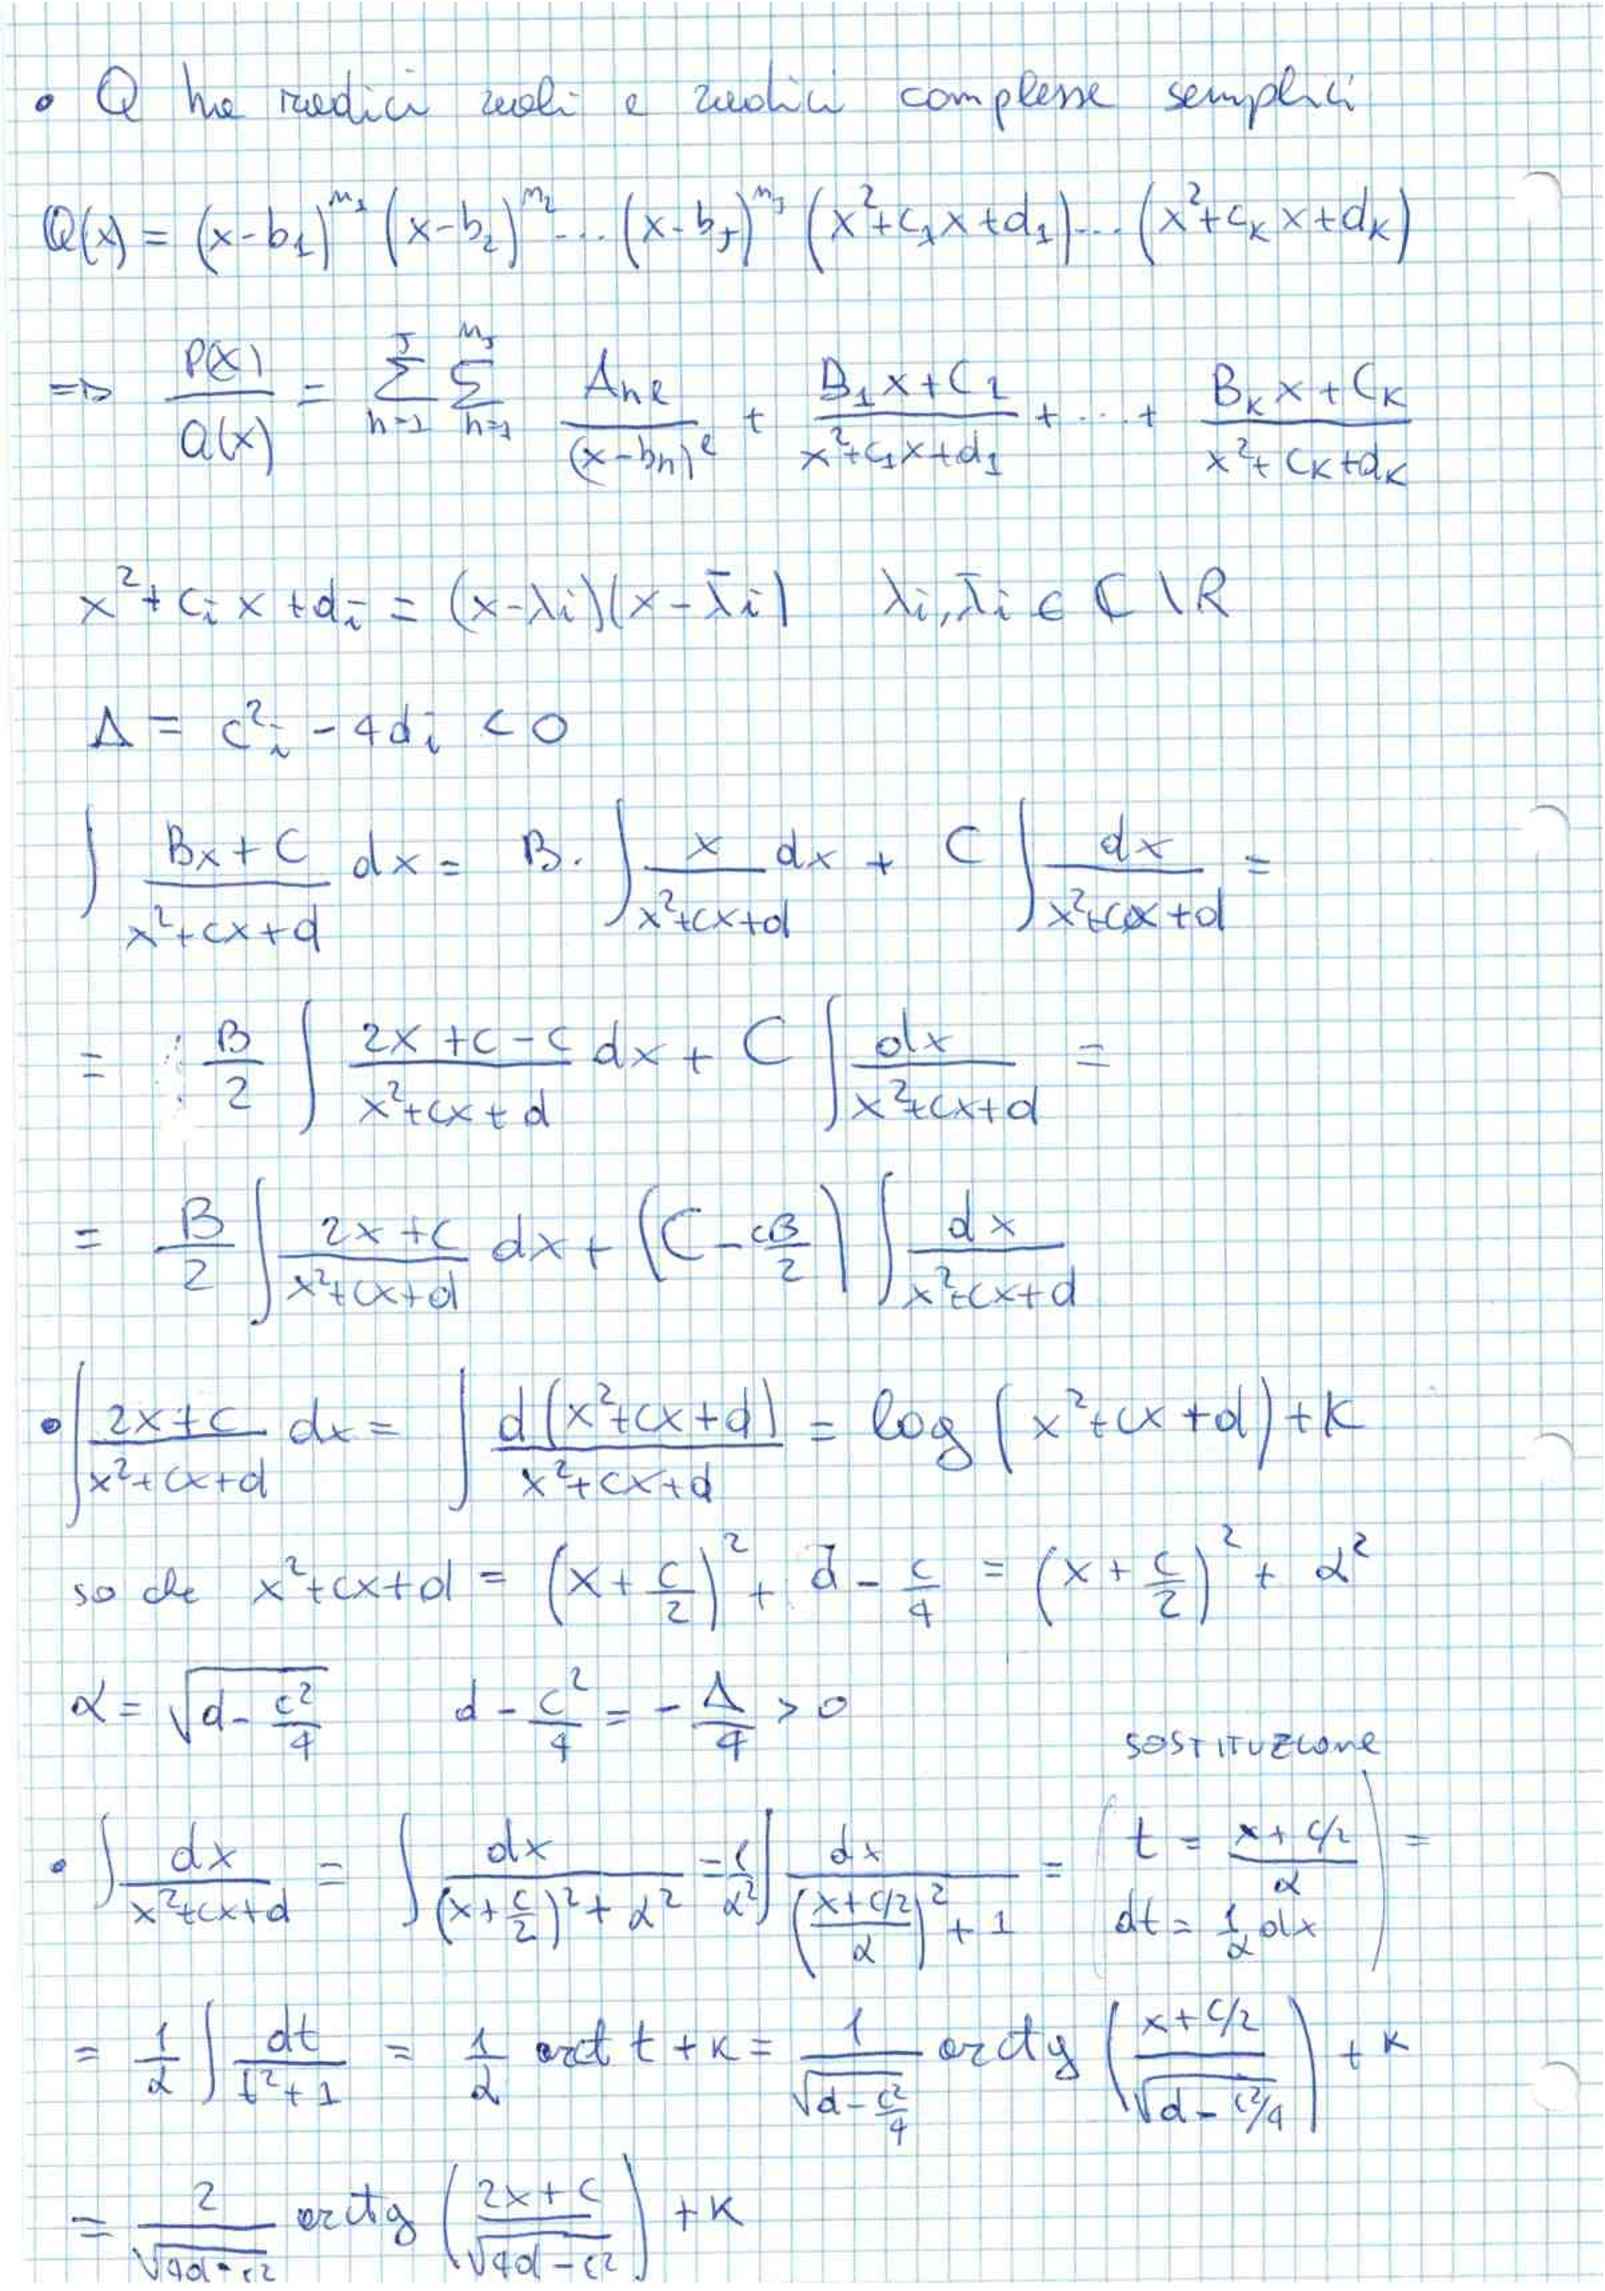 • Q ha radici reali e radici complesse semplici
Q(x) = (x-b₁)^{n₁} (x-b₂)^{n₂} ... (x-b_J)^{n_J} (x²+c₁x+d₁)... (x²+c_K x+d_K)
=> P(x)/Q(x) = Σ_{h=1}^{J} Σ_{h=1}^{n_J} A_{hℓ}/(x-b_h)^ℓ + (B₁x+C₁)/(x²+c₁x+d₁) + ... + (B_K x+C_K)/(x²+c_K+d_K)
x²+c_i x+d_i = (x-λ_i)(x-λ̄_i) λ_i, λ̄_i ∈ ℂ\ℝ
Δ = c²_i - 4d_i < 0
∫ (Bx+C)/(x²+cx+d) dx = B· ∫ x/(x²+cx+d) dx + C ∫ dx/(x²+cx+d) =
= B/2 ∫ (2x+c-c)/(x²+cx+d) dx + C ∫ dx/(x²+cx+d) =
= B/2 ∫ (2x+c)/(x²+cx+d) dx + (C - cB/2) ∫ dx/(x²+cx+d)
• ∫ (2x+c)/(x²+cx+d) dx = ∫ d(x²+cx+d)/(x²+cx+d) = log (x²+cx+d) + K
so che x²+cx+d = (x+c/2)² + d - c/4 = (x+c/2)² + α²
α = √(d - c²/4) d - c²/4 = -Δ/4 > 0
SOSTITUZIONE
• ∫ dx/(x²+cx+d) = ∫ dx/((x+c/2)²+α²) = 1/α² ∫ dx/(((x+c/2)/α)²+1) = (t = (x+c/2)/α dt = 1/α dx) =
= 1/α ∫ dt/(t²+1) = 1/α arct t + K = 1/√(d-c²/4) arctg ((x+c/2)/√(d-c²/4)) + K
= 2/√(4d-c²) arctg ((2x+c)/√(4d-c²)) + K